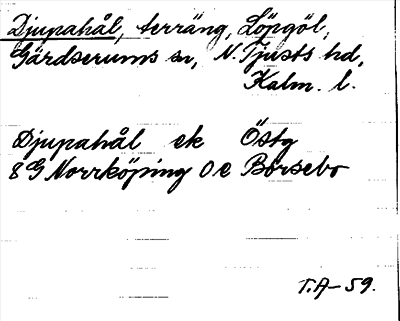 Djupahål, terräng, Löpgöl,
Gärdserums sn, N. Tjusts hd,
Kalm. l.
Djupahål ek Östg
8G Norrköping 0e Börsebo
T.A-59.